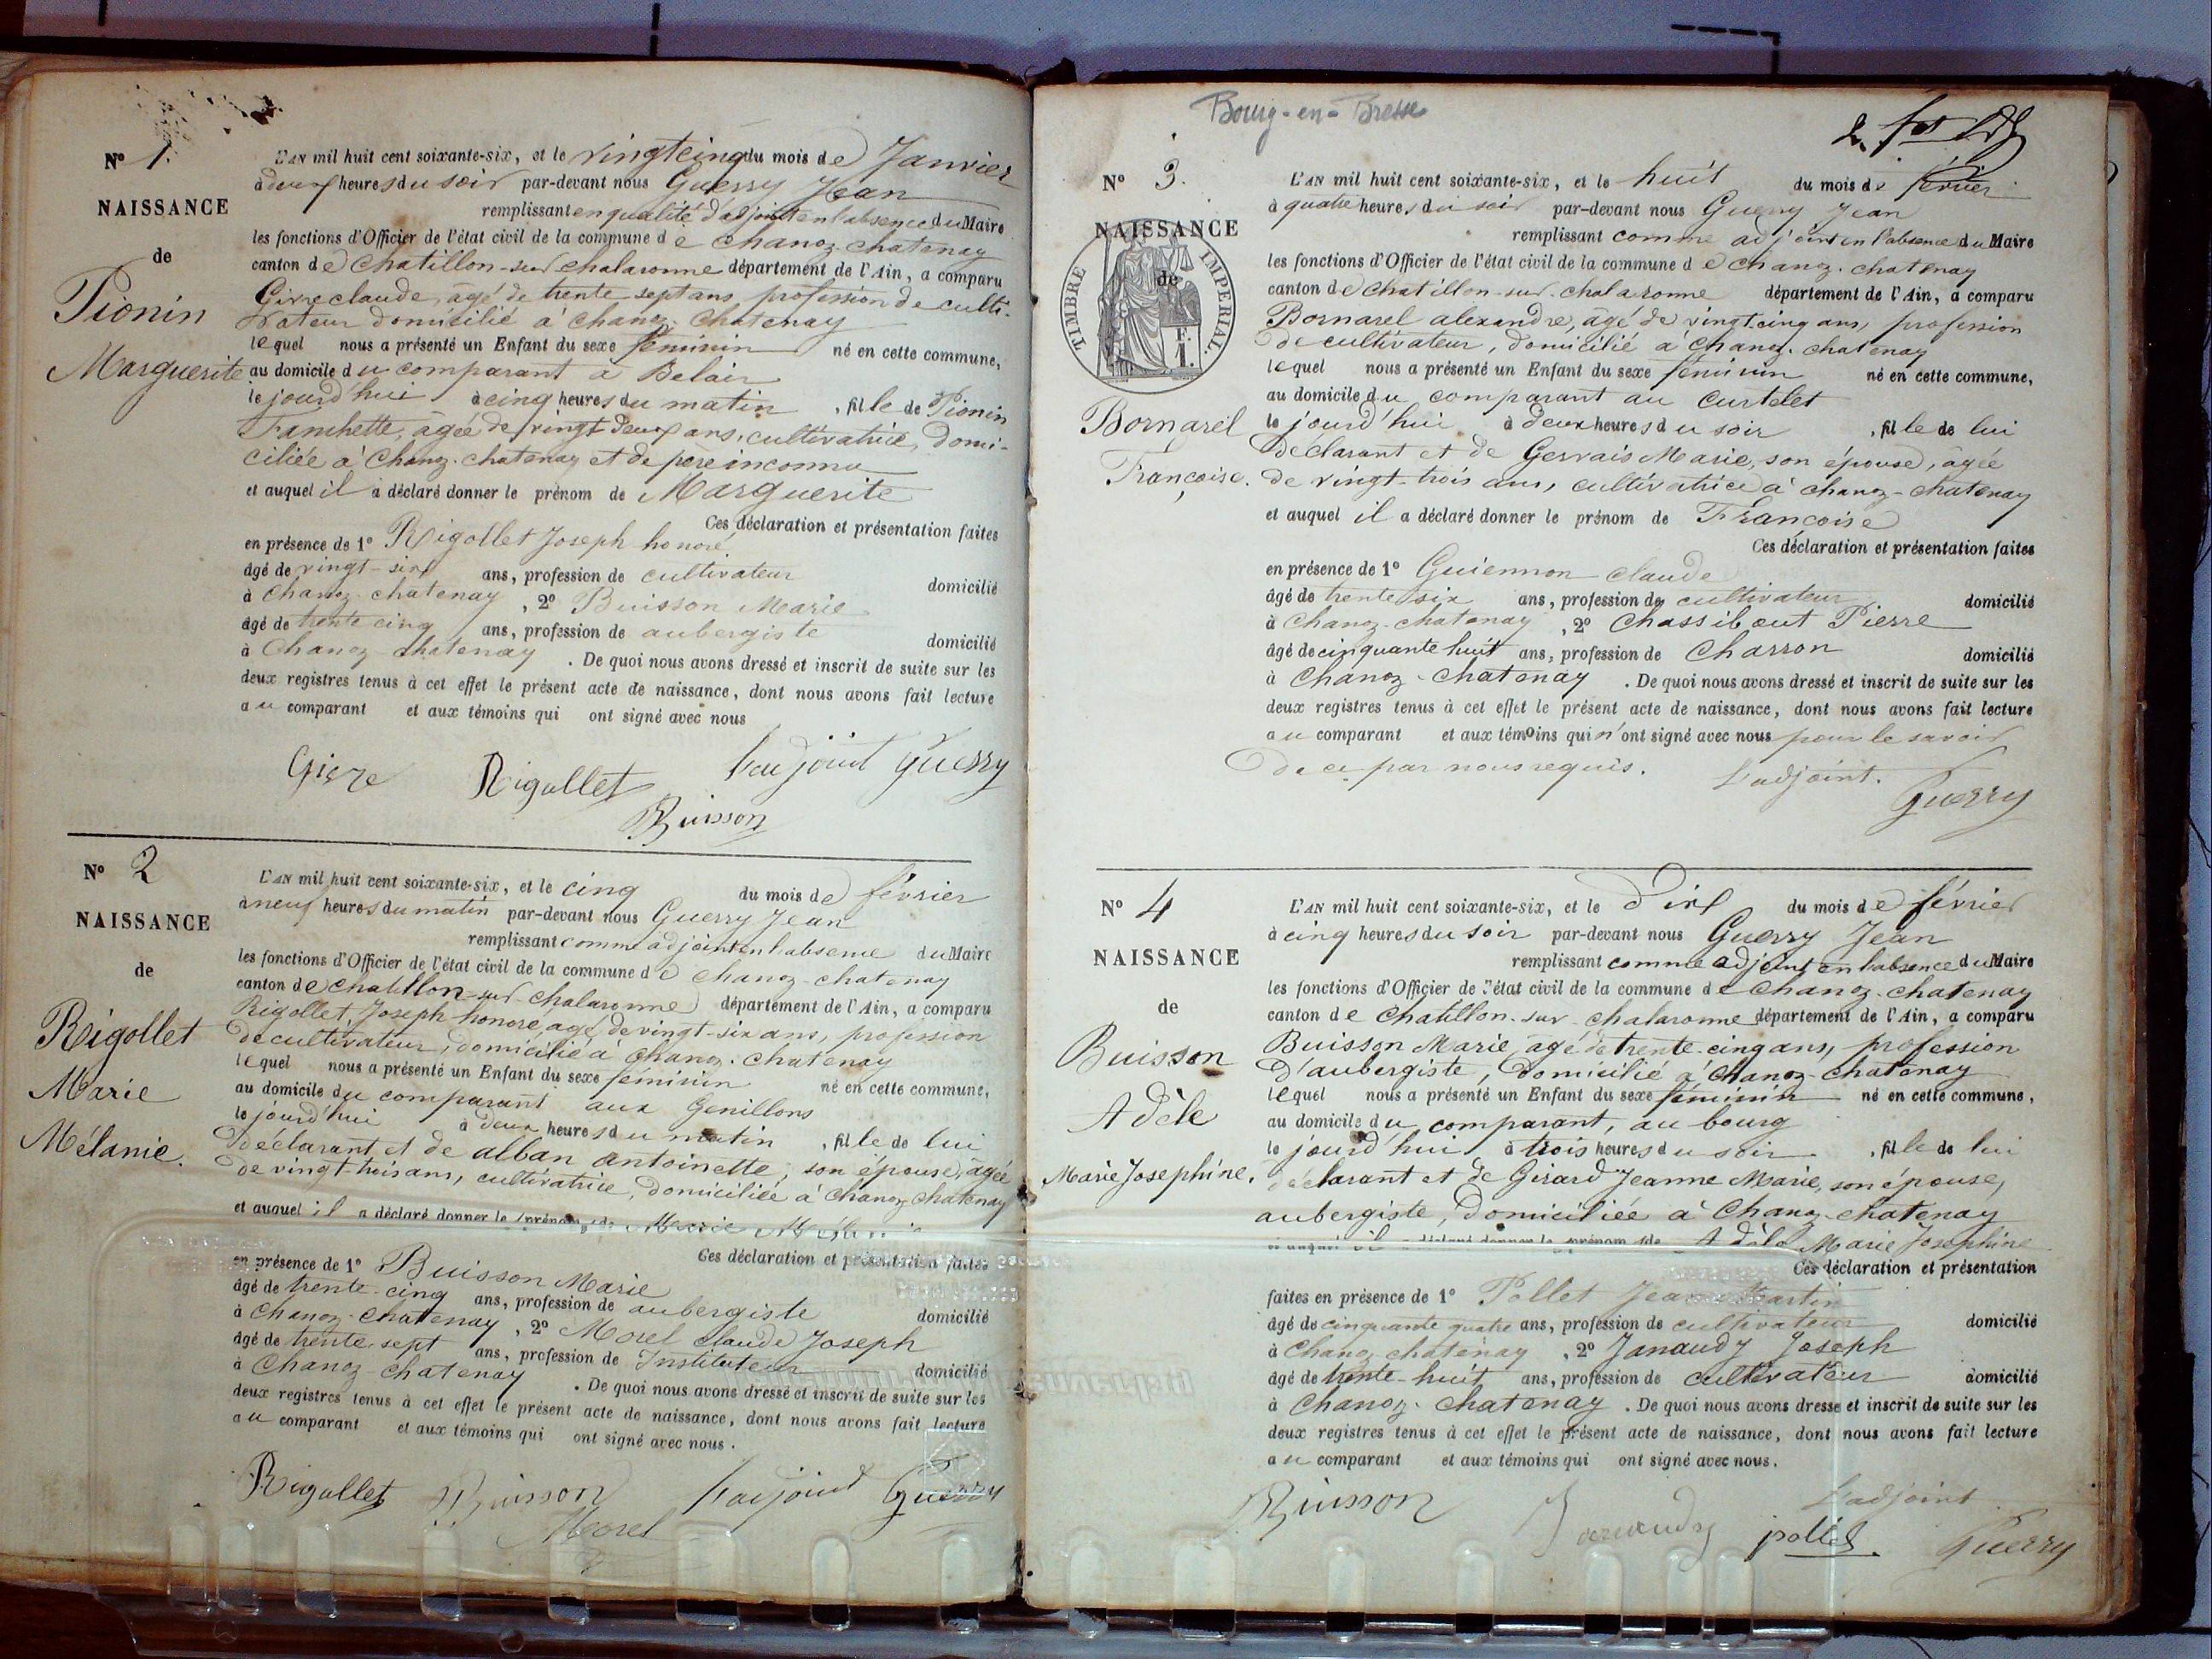 Nº 1.
NAISSANCE
de
Pionin
Marguerite
L'AN mil huit cent soixante-six, et le vingtcinq du mois de Janvier
à deux heures du soir par-devant nous Guerry Jean
remplissant en qualité d'adjoint en l'absence du Maire
les fonctions d'Officier de l'état civil de la commune de Chanoz-chatenay
canton de Chatillon-sur-chalaronne département de l'Ain, a comparu
Givre claude, âgé de trente sept ans, profession de culti-
vateur domicilié à Chanoz-Chatenay
lequel nous a présenté un Enfant du sexe féminin né en cette commune,
au domicile du comparant à Belair
le jourd'hui à cinq heures du matin, fille de Pionin
Fanchette, âgée de vingt deux ans, cultivatrice, domi-
ciliée à Chanoz-chatenay et de père inconnu
et auquel il a déclaré donner le prénom de Marguerite
Ces déclaration et présentation faites
en présence de 1º Rigollet Joseph honoré
âgé de vingt-six ans, profession de cultivateur domicilié
à Chanoz-chatenay, 2º Buisson Marie
âgé de trente cinq ans, profession de aubergiste domicilié
à Chanoz-chatenay. De quoi nous avons dressé et inscrit de suite sur les
deux registres tenus à cet effet le présent acte de naissance, dont nous avons fait lecture
au comparant et aux témoins qui ont signé avec nous
Givre Rigollet L'adjoint Guerry
Buisson
Nº 2
NAISSANCE
de
Rigollet
Marie
Mélanie.
L'AN mil huit cent soixante-six, et le cinq du mois de février
à neuf heures du matin par-devant nous Guerry Jean
remplissant comme adjoint en l'absence du Maire
les fonctions d'Officier de l'état civil de la commune de Chanoz-chatenay
canton de Chatillon-sur-chalaronne département de l'Ain, a comparu
Rigollet Joseph honoré, agé de vingt-six ans, profession
de cultivateur, domicilié à Chanoz-chatenay
lequel nous a présenté un Enfant du sexe féminin né en cette commune,
au domicile du comparant aux Genillons
le jourd'hui à deux heures du matin, fille de lui
déclarant et de alban Antoinette, son épouse, âgée
de vingt trois ans, cultivatrice, domiciliée à Chanoz chatenay
et auquel il a déclaré donner le prénom de Marie Mélanie
Ces déclaration et présentation faites
en présence de 1º Buisson Marie
âgé de trente-cinq ans, profession de aubergiste domicilié
à Chanoz-chatenay, 2º Morel Claude Joseph
âgé de trente sept ans, profession de Instituteur domicilié
à Chanoz-chatenay. De quoi nous avons dressé et inscrit de suite sur les
deux registres tenus à cet effet le présent acte de naissance, dont nous avons fait lecture
au comparant et aux témoins qui ont signé avec nous.
Rigollet Buisson L'adjoint Guerry
Morel
Bourg-en-Bresse
Nº 3.
NAISSANCE
de
TIMBRE IMPERIAL.
F.
1.
Bornarel
Françoise.
L'AN mil huit cent soixante-six, et le huit du mois de février
à quatre heures du soir par-devant nous Guerry Jean
remplissant comme adjoint en l'absence du Maire
les fonctions d'Officier de l'état civil de la commune de Chanoz-chatenay
canton de Chatillon-sur-chalaronne département de l'Ain, a comparu
Bornarel alexandre, âgé de vingt-cinq ans, profession
de cultivateur, domicilié à Chanoz-chatenay
lequel nous a présenté un Enfant du sexe féminin né en cette commune,
au domicile du comparant au Curtelet
le jourd'hui à deux heures du soir, fille de lui
déclarant et de Gervais Marie, son épouse, âgée
de vingt-trois ans, cultivatrice à Chanoz-chatenay
et auquel il a déclaré donner le prénom de Françoise
Ces déclaration et présentation faites
en présence de 1º Guiennon claude
âgé de trente six ans, profession de cultivateur domicilié
à Chanoz-chatenay, 2º Chassibout Pierre
âgé de cinquante huit ans, profession de Charron domicilié
à Chanoz-Chatenay. De quoi nous avons dressé et inscrit de suite sur les
deux registres tenus à cet effet le présent acte de naissance, dont nous avons fait lecture
au comparant et aux témoins qui n'ont signé avec nous pour le savoir
de ce par nous requis. L'adjoint.
Guerry
Nº 4
NAISSANCE
de
Buisson
Adèle
Marie Josephine.
L'AN mil huit cent soixante-six, et le dix du mois de février
à cinq heures du soir par-devant nous Guerry Jean
remplissant comme adjoint en l'absence du Maire
les fonctions d'Officier de l'état civil de la commune de Chanoz-chatenay
canton de Chatillon-sur-chalaronne département de l'Ain, a comparu
Buisson Marie, agé de trente-cinq ans, profession
d'aubergiste, domicilié à Chanoz-chatenay
lequel nous a présenté un Enfant du sexe féminin né en cette commune,
au domicile du comparant, au bourg
le jourd'hui à trois heures du soir, fille de lui
déclarant et de Girard Jeanne Marie, son épouse,
aubergiste, domiciliée à Chanoz-chatenay
et auquel il a déclaré donner le prénom de Adèle Marie Josephine
Ces déclaration et présentation
faites en présence de 1º Pollet Jean Martin
âgé de cinquante quatre ans, profession de cultivateur domicilié
à Chanoz chatenay, 2º Janaudy Joseph
âgé de trente-huit ans, profession de cultivateur domicilié
à Chanoz-chatenay. De quoi nous avons dressé et inscrit de suite sur les
deux registres tenus à cet effet le présent acte de naissance, dont nous avons fait lecture
au comparant et aux témoins qui ont signé avec nous.
Buisson Janaudy pollet L'adjoint
Guerry